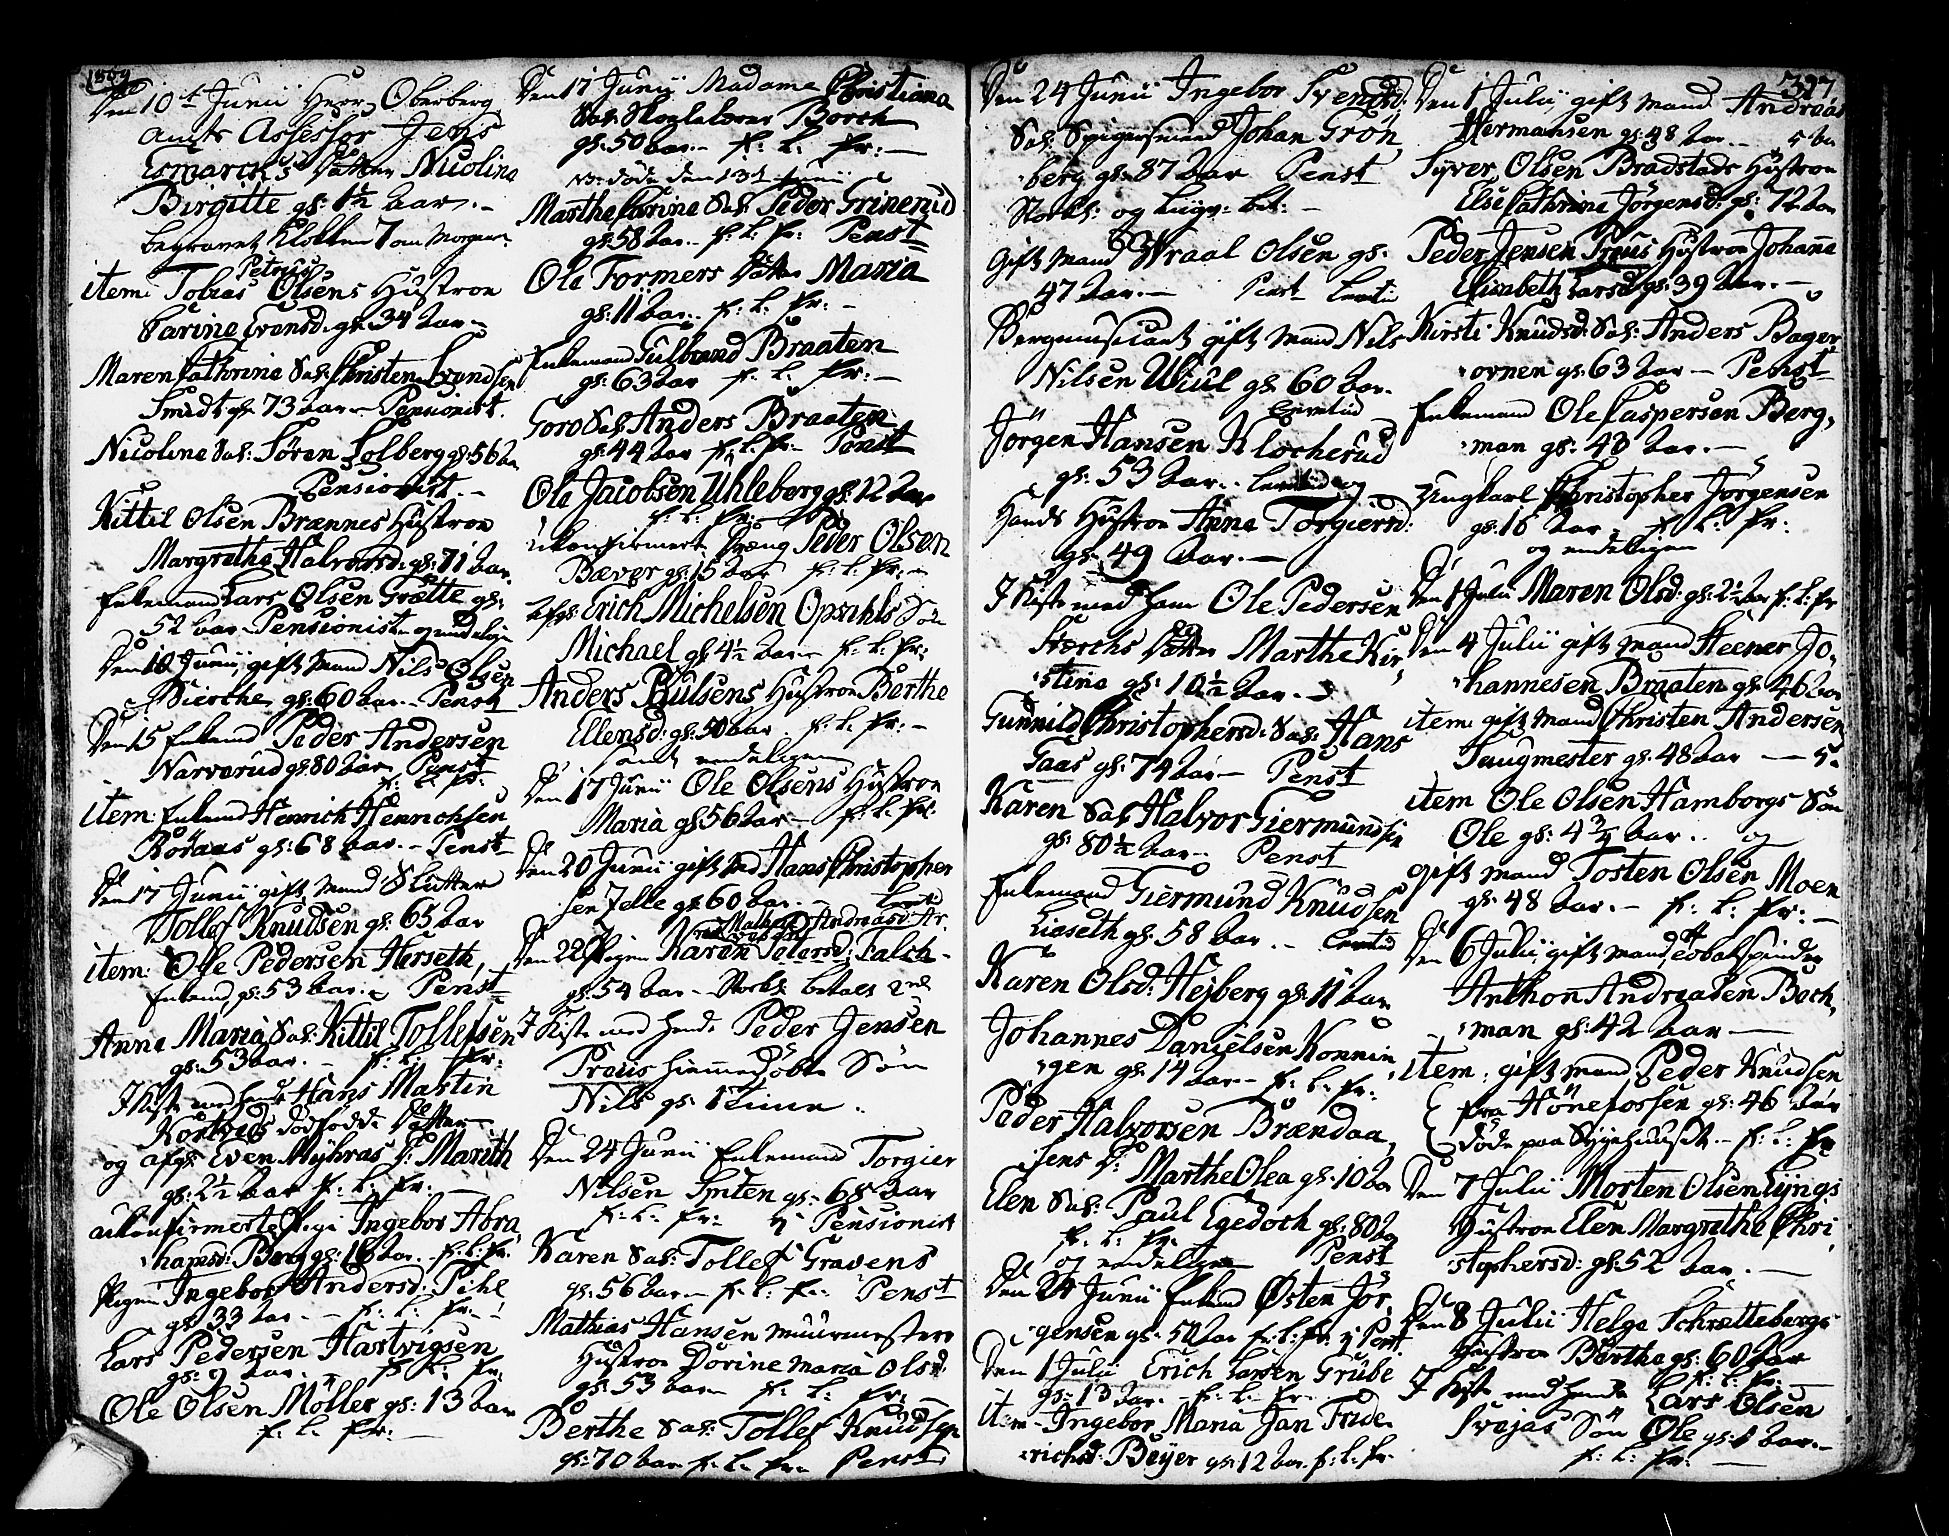 1809
Den 10t Junii Herr Oberberg
amts Assessor Jens
Esmarchs Datter Nicolina
Birgitte gl: 1½ aar.
begravet Klokken 7 om Morgen
Petrus
item: Tobias Olsens Hustroe
Carine Evensd. gl: 34 aar
Maren Cathrine Sal: Christen Svendsen
Smidt gl: 73 aar – Pensionist.
Nicoline Sal: Sören Solberg gl: 56 aar
Pensionist. –
Kittil Olsen Brænnes Hustroe
Margrethe Halvorsd. gl: 71 aar.
Enkemand Lars Olsen Grætte gl:
52 aar – Pensionist og endeligen
Den 10 Junii gift Mand Nils Olsen
Bierche gl: 60 aar. – Penst
Den 15 Enkemd Peder Andersen
Narverud gl: 80 aar Penst
f: l: fr:
item: Enkemd Henrich Henrichsen
Röraas gl: 68 aar. – Penst
Den 17 Junii gift Mand Slutter
Tollef Knudsen gl: 65 aar
item: Ole Pedersen Herseth,
Enkemd gl: 53 aar. – Penst
Anne Maria Sal: Kittil Tollefsen
gl: 53 aar. – f: l: fr:
I Kiste med hende Hans Martin
Kortveds dödfödde Datter
og afgl: Even Myhras D: Marith
gl: 2½ aar f: l: fr:
ukonfirmerte Pige Ingebor Abra
hamsd: Berg gl: 16 aar. – f: l: fr:
Pigen Ingebor Andersd: Pihl
gl: 33 aar. – f: l: fr:
Lars Pedersen Hartvigsen
gl: 9 aar. – f: l: fr:
Ole Olsen Möller gl: 13 aar
f: l: fr: –
Den 17 Junii Madame Christiana
Sal: Borch
gl: 50 aar. – f: l: fr: –
NB: döde den 13de Junii
Marthe Carine Sal: Peder Grinerud
gl: 58 aar. – f: l: fr: Penst
Ole Formers Datter Maria
gl: 11 aar. – f: l: fr: –
Enkemand Gulbrand Braaten
gl: 63 aar f: l: fr: –
Goro Sal: Anders Braaten
gl: 44 aar f: l: fr: Penst
Ole Jacobsen Uhleberg gl: 12 aar
f: l: fr:
ukonfirmert Dræng Peder Olsen
Bæver gl: 15 aar f: l: fr: –
afgl: Erich Michelsen Opsahls Sön
Michael gl: 4½ aar – f: l: fr:
Anders Paulsens Hustroe Berthe
Ellensd: gl: 50 aar. f: l: fr: –
samt endeligen
Den 17 Junii Ole Olsens Hustroe
Maria gl: 56 aar – f: l: fr:
Den 20 Junii gift Md Hans Christopher
sen Jelle gl: 60 aar. –
Andreasd:
Den 22 Pigen Karen Petersd: Falch
gl: 54 aar –
I Kiste med hende Peder Jensen
Preus hiemmedöbte Sön
Nils gl: 1 Time.
Den 24 Junii Enkemand Torgier
Nilsen Smten gl: 68 aar
f: l: fr: Pensionist
Karen Sal: Tollef Gravens
gl: 56 aar. – f: l: fr: Penst
Mathias Hansen Muurmesters
Hustroe Dorine Maria Olsd.
gl: 53 aar f: l: fr: –
Berthe Sal: Tollef Knudsen
gl: 70 aar f: l: fr: Penst
327.
Den 24 Junii Ingebor Svendsd:
Sal: Johan Grön
berg gl: 87 aar Penst

Gift Mand Wraal Olsen gl:
47 aar. – Penst
Bergmusicant gift Mand Nils
Nilsen Wiul gl: 60 aar.
Jörgen Hansen Klocherud
gl: 53 aar. – og
Hands Hustroe Anne Torgiersd:
gl: 49 aar. –
I Kiste med ham Ole Pedersen
Storchs Datter Marthe Kir
stine gl: 10½ aar. –
Gunnild Christophersd: Sal: Hans
Gaas gl: 74 aar – Penst
Karen Sal: Halvor Giermundsen
gl: 80½ aar – Penst
Enkemand Giermund Knudsen
Liaseth gl: 58 aar. –
Karen Olsd: Hejberg gl: 11 aar
Johannes Danielsen Konnin
gen gl: 14 aar. – f: l: fr:
Peder Halvorsen Brændaa,
sens D: Marthe Olea gl: 10 aar
Elen Sal: Paul Egedoch gl: 80 aar
f: l: fr: Penst
og endeligen
Den 24 Junii Enkemd Östen Jör
gensen gl: 50 aar f: l: fr: Penst.
Den 1 Julii Erich Larsen Grube
gl: 13 aar. – f: l: fr:
item – Ingebor Maria Jan Fride
richsd: Beyer gl: 12 aar. f: l: fr.
Den 1 Julii gift Mand Andreas
Hermansen gl: 48 aar. –
Syver Olsen Bradstads Hustroe
Else Cathrine Jörgensd: gl: 72 aar
Peder Jensen Preus Hustroe Johanna
Elisabeth Larsd: gl: 39 aar. –
Kirsti Knudsd: Sal: Anders Bager
ovnen gl: 63 aar – Penst
Enkemand Ole Caspersen Berg,
man gl: 48 aar. –
Ungkarl Christopher Jörgensen
gl: 16 aar – f: l: fr:
og endeligen
Den 1 Julii Maren Olsd: gl: 2½ aar f: l: fr
Den 4 Julii gift Mand Steener Jo,
hannesen Braaten gl: 46 aar
item: gift Mand Christen Andersen
Saugmester gl: 48 aar –
item Ole Olsen Hamborgs Sön
Ole gl: 4¾ aar. – og
gift Mand Tosten Olsen Moen
gl: 48 aar. – f: l: fr: –
Den 6 Julii gift Mand Tobakspinder
Anthon Andreasen Boch,
man gl: 42 aar –
item: gift Mand Peder Knudsen
fra Hönefossen gl: 46 aar
döde paa Sygehuuset. – f: l: fr
Den 7 Julii Morten Olsen Lyngs
Hustroe Elen Margrethe Chri,
stophersd: gl: 52 aar. –
Den 8 Julii Helge Schrettebergs
Hustroe Berthe gl: 60 aar
f: l: fr: –
I Kiste med hende Lars Olsen
Svejas Sön Ole gl: 1 aar. –
f: l: fr: –